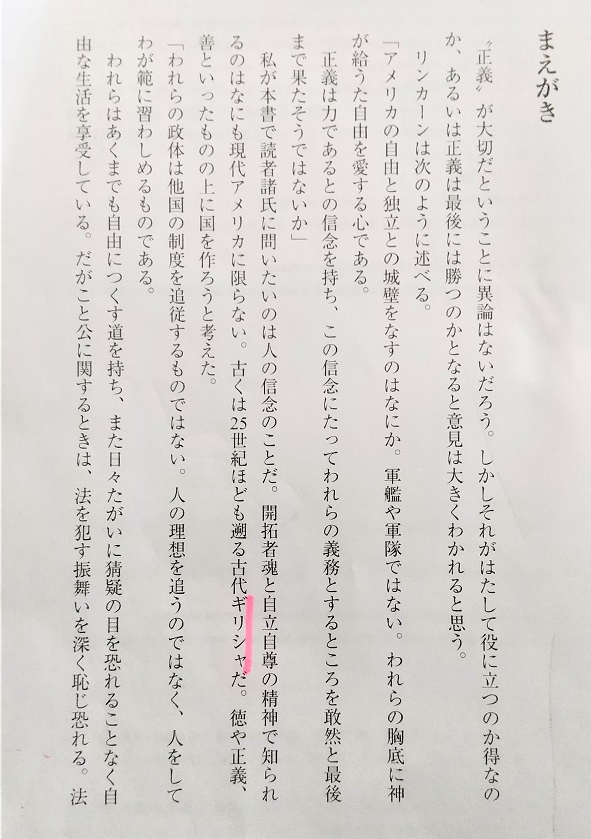 まえがき
“正義”が大切だということに異論はないだろう。しかしそれがはたして役に立つのか得なの
か、あるいは正義は最後には勝つのかとなると意見は大きくわかれると思う。
リンカーンは次のように述べる。
「アメリカの自由と独立との城壁をなすのはなにか。軍艦や軍隊ではない。われらの胸底に神
が給うた自由を愛する心である。
正義は力であるとの信念を持ち、この信念にたってわれらの義務とするところを敢然と最後
まで果たそうではないか」
私が本書で読者諸氏に問いたいのは人の信念のことだ。開拓者魂と自立自尊の精神で知られ
るのはなにも現代アメリカに限らない。古くは25世紀ほども遡る古代ギリシャだ。徳や正義、
善といったものの上に国を作ろうと考えた。
「われらの政体は他国の制度を追従するものではない。人の理想を追うのではなく、人をして
わが範に習わしめるものである。
われらはあくまでも自由につくす道を持ち、また日々たがいに猜疑の目を恐れることなく自
由な生活を享受している。だがこと公に関するときは、法を犯す振舞いを深く恥じ恐れる。法